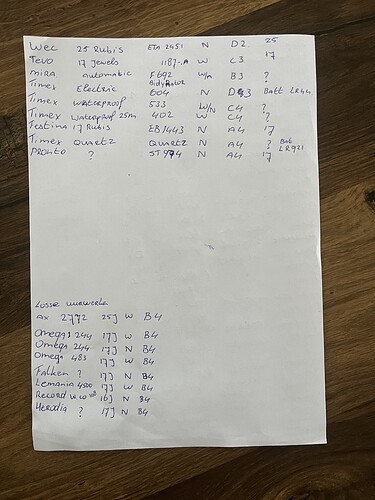 Wec 25 Rubis ETA 2451 N D2 25
Tevo 17 Jewels 1187-A W C3 17
mira automatic F692 W/n B3 ?
Timex Electric 604 N D3 Batt LR44
Timex waterproof 533 W/N C4 ?
Timex waterproof 25m 402 W C4 ?
Festina 17 Rubis EB1443 N A4 17
Timex Quartz Quartz N A4 ? Bat LR921
Pronto ? ST 974 N A4 17
Losse uurwerke
AX 2772 25J W B4
Omega 1244 17J W B4
Omega 244 17J N B4
Omega 483 17J W B4
Falken ? 17J N B4
Lemania 4500 17J W B4
Record 16J N B4
Herodia ? 17J N B4